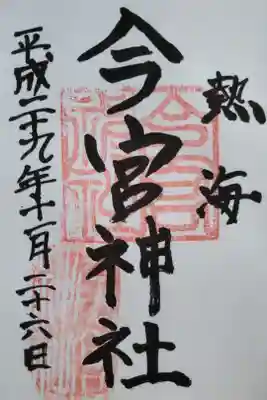 熱海
今宮神社
平成二十九年十一月二十六日